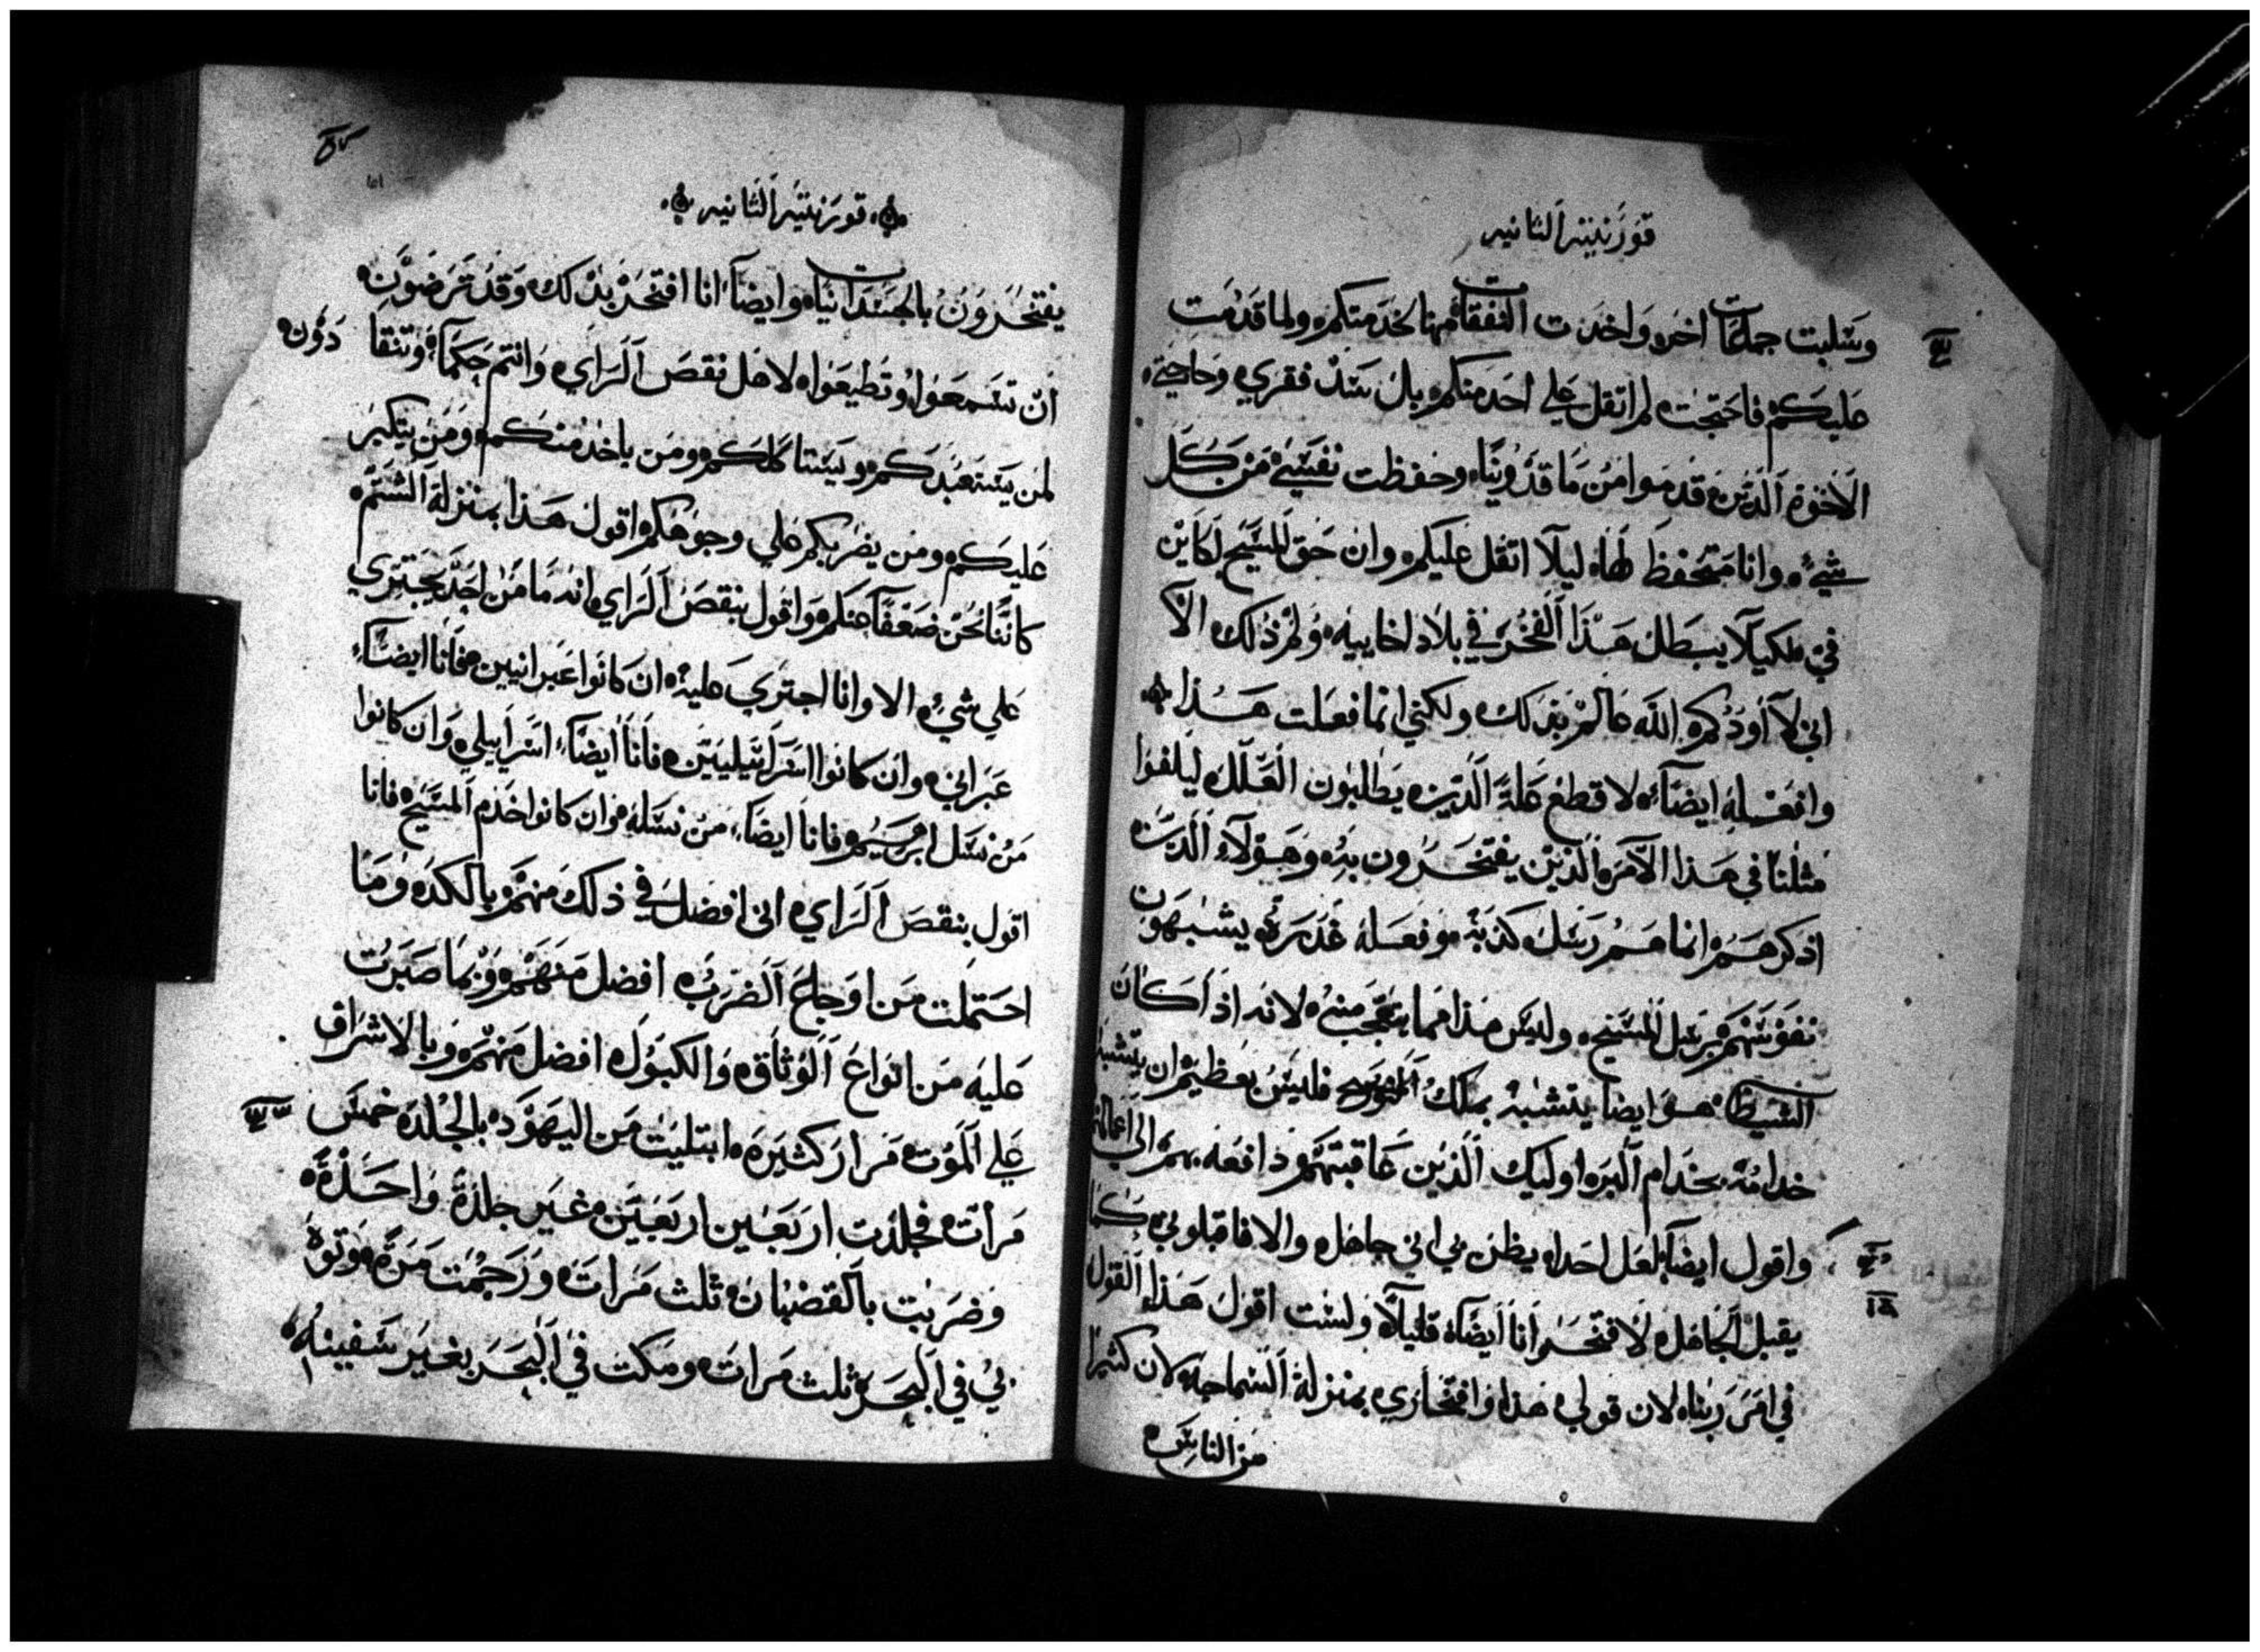 قورنتيه الثانيه
وسلبت جماعات اخر واخدت النفقات منها لخدمتكم ولما قدمت
عليكم فاحتجت لم اثقل علي احد منكم بل سد فقري وحاجتي
الاخوة الدين قدموا من ماقدونيا وحفظت نفسي من كل
شيء وانا متحفظ لها ليلا اثقل عليكم وان حق المسيح لكاين
في لكيلا يبطل هذا الفخر في بلاد اخاييه ولم ذلك الا
اني لا اودكم الله عالم بذلك ولكني انما فعلت هذا
وافعله ايضاً لاقطع علة الذين يطلبون العلل ليلفوا
مثلنا في هذا الامر الذين يفتخرون به وهولاء الدين
اذكرهم انما هم رسل كذبة وفعلة غدرة يشبهون
نفوسهم برسل المسيح وليس هذا مما يتعجب منه لانه اذا كان
الشيطان هو ايضا يتشبه بملك النور فليس بعظيم ان يتشبه
خدامه بخدام البر اوليك الذين عاقبتهم دافعه بهم الي اعمالهم
واقول ايضاً لعل احدا يظن بي اني جاهل والا فاقبلوني كما
يقبل الجاهل لافتخر انا ايضاً قليلاً ولست اقول هذا القول
في امر ربنا لان قولي هذا وافتخاري بمنزلة السماجه لان كثيرا
من الناس
قورنتيه الثانيه
يفتخرون بالجسدانيات وايضاً انا افتخر بذلك وقد ترضون
ان تسمعوا وتطيعوا لاهل نقص الراي وانتم حكماء وتنقادون
لمن يستعبدكم ويستاكلكم ومن ياخذ منكم ومن يتكبر
عليكم ومن يضربكم علي وجوهكم اقول هذا بمنزلة الشتم
كاننا نحن ضعفاً عنكم واقول بنقص الراي انه ما من احد يجتري
علي شيء الا وانا اجتري عليه ان كانوا عبرانيين فانا ايضاً
عبراني وان كانوا اسراييليين فانا ايضاً اسراييلي وان كانوا
من نسل ابرهيم فانا ايضاً من نسله وان كانوا خدم المسيح فانا
اقول بنقص الراي اني افضل في ذلك منهم بالكد وما
احتملت من اوجاع الضرب افضل منهم وبما صبرت
عليه من انواع الوثاق والكبول افضل منهم وبالاشراف
علي الموت مرار كثيره ابتليت من اليهود بالجلد خمس
مرات فجلدت اربعين اربعين غير جلدة واحدة
وضربت بالقضبان ثلث مرات ورجمت مرة وتوه
بي في البحر ثلث مرات ومكت في البحر بغير سفينه